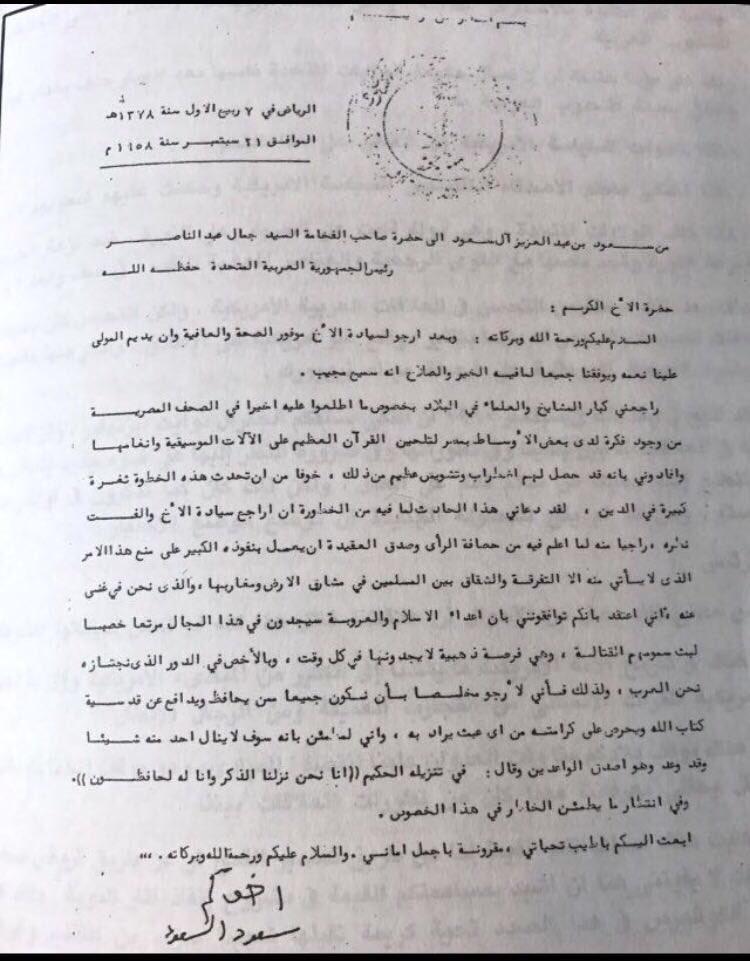 بسم الله الرحمن الرحيم
الرياض في ٧ ربيع الاول سنة ١٣٧٨هـ
الموافق ٢١ سبتمبر سنة ١٩٥٨ م
من سعود بن عبد العزيز آل سعود الى حضرة صاحب الفخامة السيد جمال عبد الناصر
رئيس الجمهورية العربية المتحدة حفظه الله
حضرة الأخ الكريم :
السلام عليكم ورحمة الله وبركاته : وبعد ارجو لسيادة الأخ موفور الصحة والعافية وان يديم المولى
علينا نعمه ويوفقنا جميعا لما فيه الخير والصلاح انه سميع مجيب .
راجعني كبار المشايخ والعلماء في البلاد بخصوص ما اطلعوا عليه اخيرا في الصحف المصرية
من وجود فكرة لدى بعض الأوساط بمصر لتلحين القرآن العظيم على الآلات الموسيقية وانغامها
وافادوني بانه قد حصل لهم اضطراب وتشويش عظيم من ذلك ، خوفا من ان تحدث هذه الخطوة ثغرة
كبيرة في الدين ، لقد دعاني هذا الحادث لما فيه من الخطورة ان اراجع سيادة الأخ والفت
نظره ، راجيا منه لما اعلم فيه من حصافة الرأى وصدق العقيدة ان يعمل بنفوذه الكبير على منع هذا الامر
الذى لا يأتي منه الا التفرقة والشقاق بين المسلمين في مشارق الارض ومغاربها ، والذى نحن في غنى
عنه ، اني اعتقد بانكم توافقونني بان اعداء الاسلام والعروبة سيجدون في هذا المجال مرتعا خصبا
لبث سمومهم القتالة ، وهي فرصة ذهبية لا يجدونها في كل وقت ، وبالأخص في الدور الذى نجتازه
نحن العرب ، ولذلك فأني لأرجو مخلصا بأن نكون جميعا ممن يحافظ ويدافع عن قدسية
كتاب الله ويحرص على كرامته من اى عبث يراد به ، واني لمطمئن بانه سوف لا ينال احد منه شيئا
وقد وعد وهو اصدق الواعدين وقال : في تنزيله الحكيم ((انا نحن نزلنا الذكر وانا له لحافظون)).
وفي انتظار ما يطمئن الخاطر في هذا الخصوص .
ابعث اليكم باطيب تحياتي ، مقرونة باجمل اماني . والسلام عليكم ورحمة الله وبركاته . ،،،
اخوكم
سعود السعود